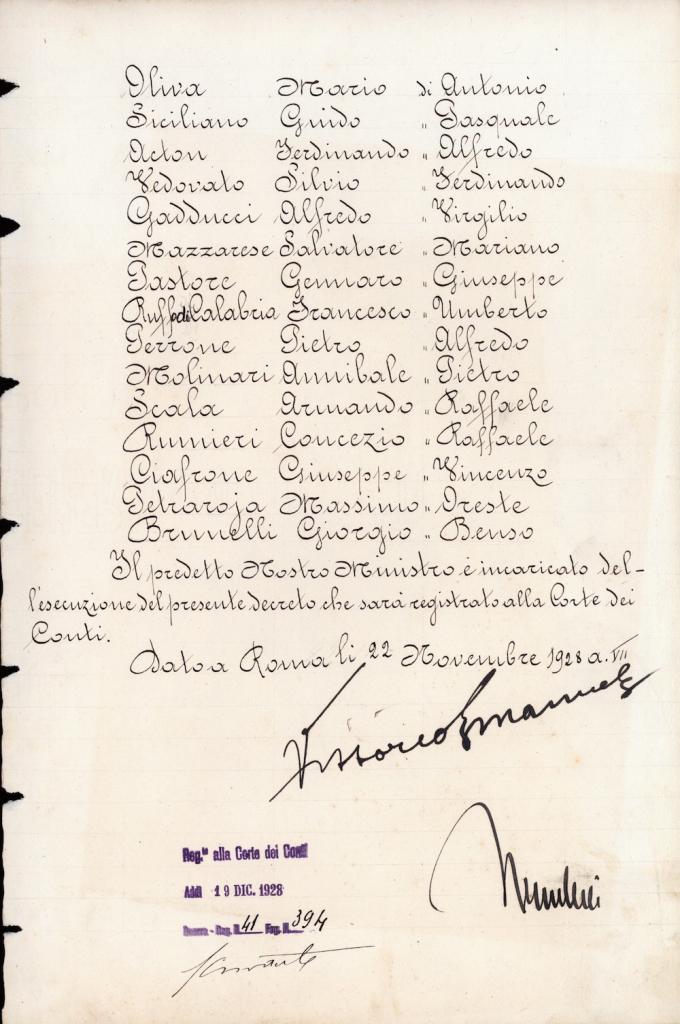 Oliva Mario di Antonio
Siciliano Guido " Pasquale
Acton Ferdinando " Alfredo
Vedovato Silvio " Ferdinando
Gadducci Alfredo " Virgilio
Mazzarese Salvatore " Mariano
Pastore Gennaro " Giuseppe
Ruffo di Calabria Francesco " Umberto
Perrone Pietro " Alfredo
Molinari Annibale " Pietro
Scala Armando " Raffaele
Rumieri Concezio " Raffaele
Ciafrone Giuseppe " Vincenzo
Petraroja Massimo " Oreste
Brunelli Giorgio " Benso
Il predetto Nostro Ministro è incaricato del-
l'esecuzione del presente decreto che sarà registrato alla Corte dei
Conti.
Dato a Roma li 22 Novembre 1928 a. VII
Vittorio Emanuele
Reg.to alla Corte dei Conti
Addì 19 DIC. 1928
Reg. N. 41 Fog. N. 394